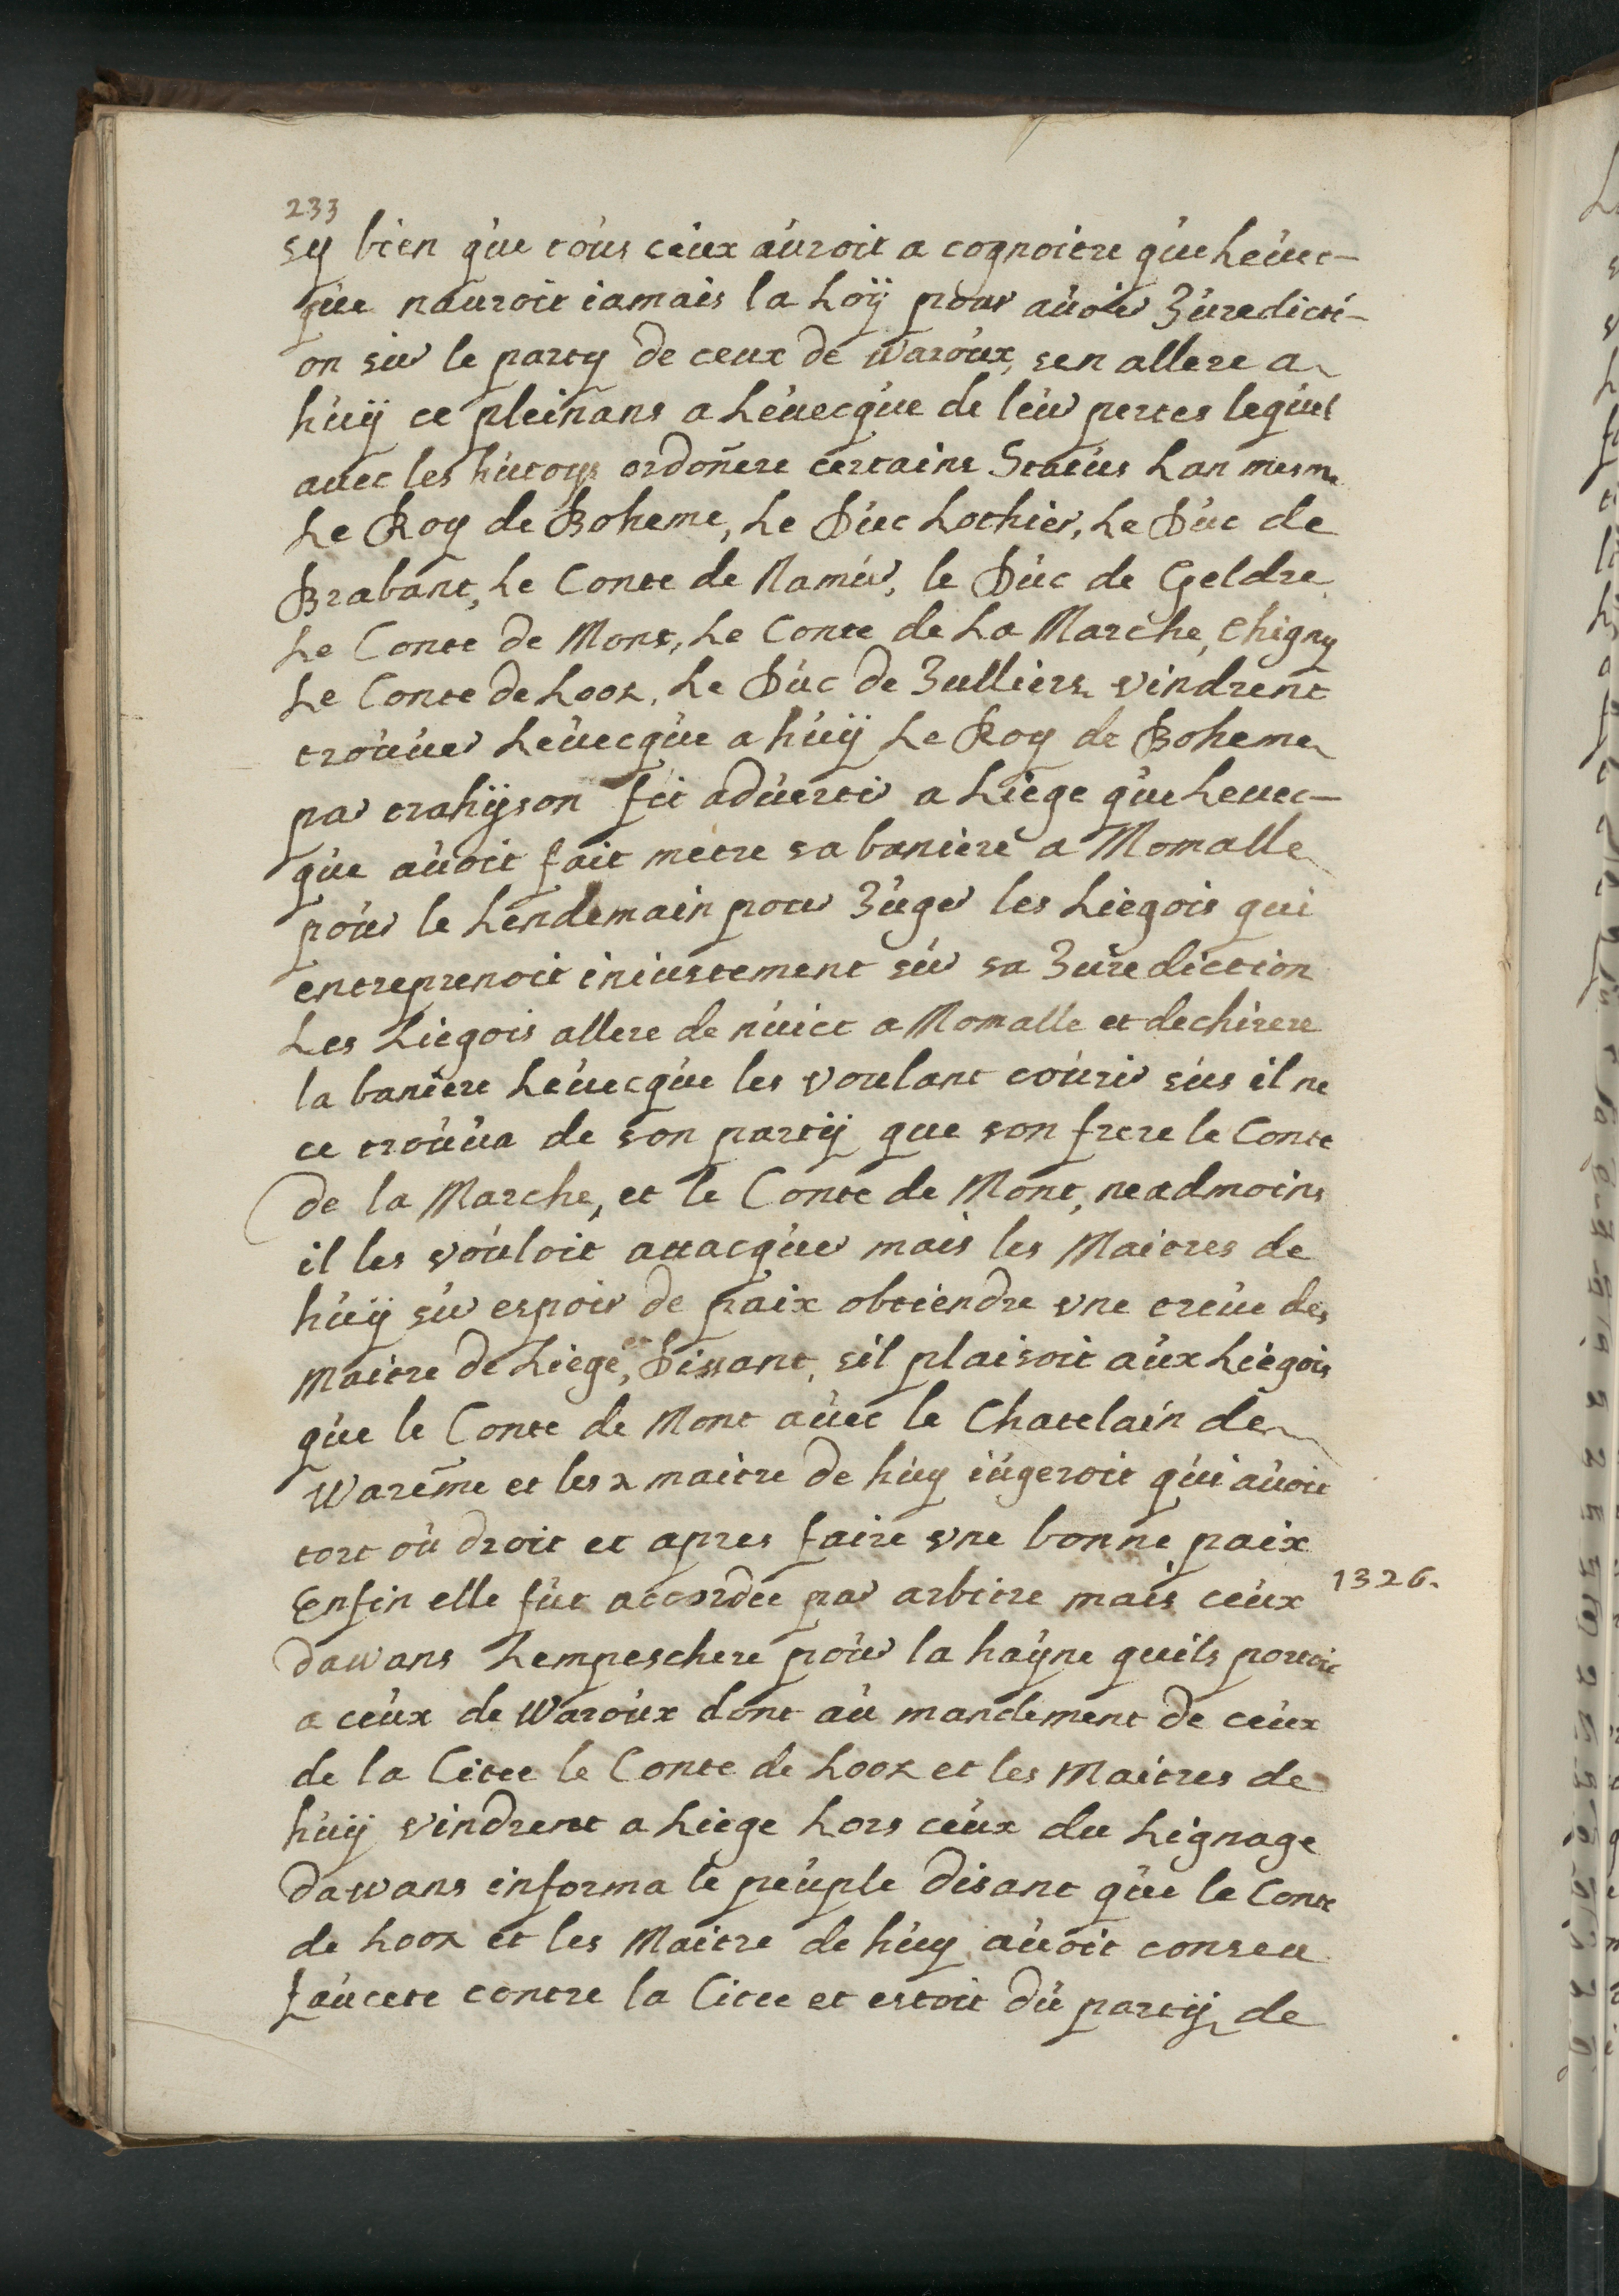 233
sy bien que tous ceux auroit a cognoitre que Leuec-
que nauroit iamais la Loÿ pour auoir Juredicti-
on sur le party de ceux de waroux, sen allere a
huÿ ce pleinans a Leuecque de leur pertes lequel
auec les hutoys ordoñere certains Status Lan mesme
Le Roy de Boheme, Le Duc Lothier, Le Duc de
Brabant, Le Conte de Namur, le Duc de Geldre,
Le Conte de Mont, Le Conte de La Marche, Chigny
Le Conte de Loox, Le Duc de Julliers vindrent
trouuer Leuecque a huÿ Le Roy de Boheme
par trahÿson fit aduerti a Liege que Leuec-
que auoit fait metre sa baniere a Momalle
pour le Lendemain pour Juger les Liegois qui
entreprenoit iniustement sur sa Jurediction
Les Liegois allere de nuict a Momalle et dechirere
la baniere Leuecque les voulant courir sus il ne
ce trouua de son partÿ que son frere le Conte
de la Marche, et le Conte de Mont, neadmoins
il les vouloit attacquer mais les Maitres de
huÿ sur espoir de paix obtiendre vne treue des
Maitre de Liege, et Dissant, sil plaisoit aux Liegois
que le Conte de Mont auec le Chatelain de
Warême et les 2 maitre de huy iugeroit qui auoit
tort ou droit et apres faire vne bonne paix
Enfin elle fut accordée par arbitre mais ceux
1326.
dawans Lempeschere pour la hayne quils portoit
a ceux de Waroux dont au mandement de ceux
de la Citee le Conte de Loox et les Maitres de
huÿ vindrent a Liege Lors ceux du Lignage
dawans informa le peuple disant que le Conte
de Loox et les Maitre de huy auoit conseu
faucete contre la Citee et estoit du partÿ de